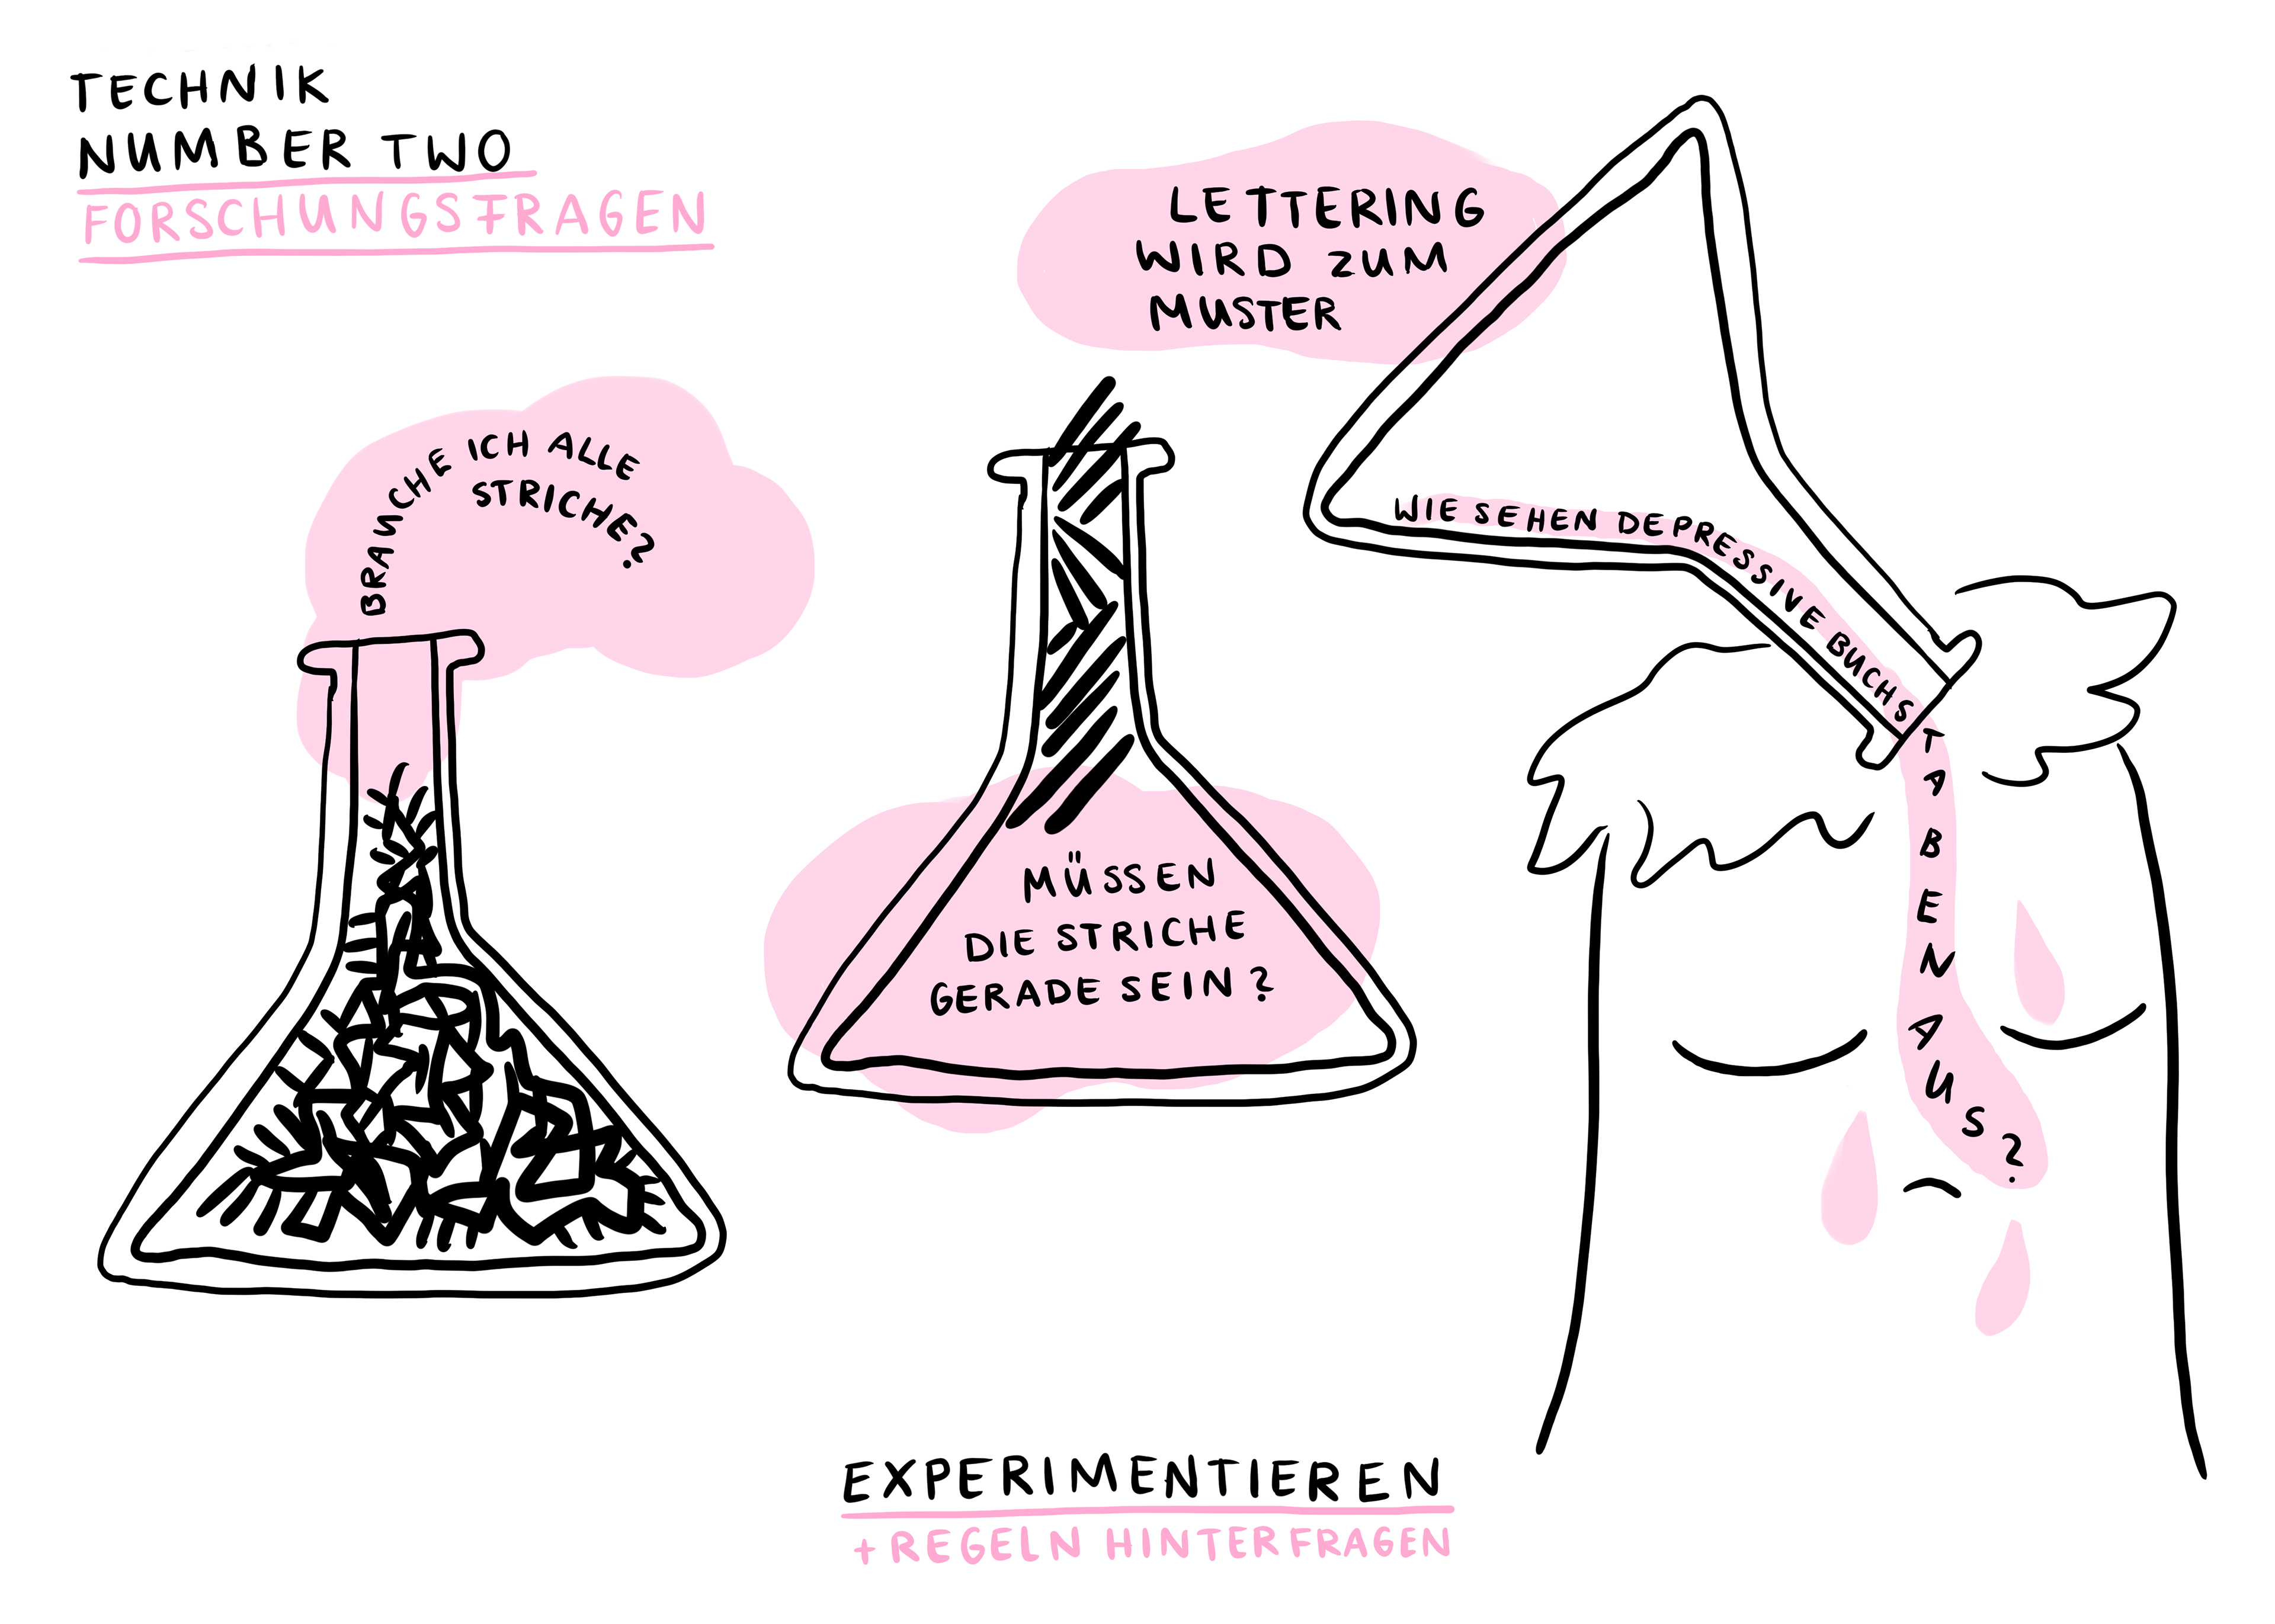 TECHNIK
NUMBER TWO
FORSCHUNGSFRAGEN
BRAUCHE ICH ALLE
STRICHE?
LETTERING
WIRD ZUM
MUSTER
MÜSSEN
DIE STRICHE
GERADE SEIN?
WIE SEHEN DEPRESSIVE BUCHSTABEN AUS?
EXPERIMENTIEREN
+ REGELN HINTERFRAGEN